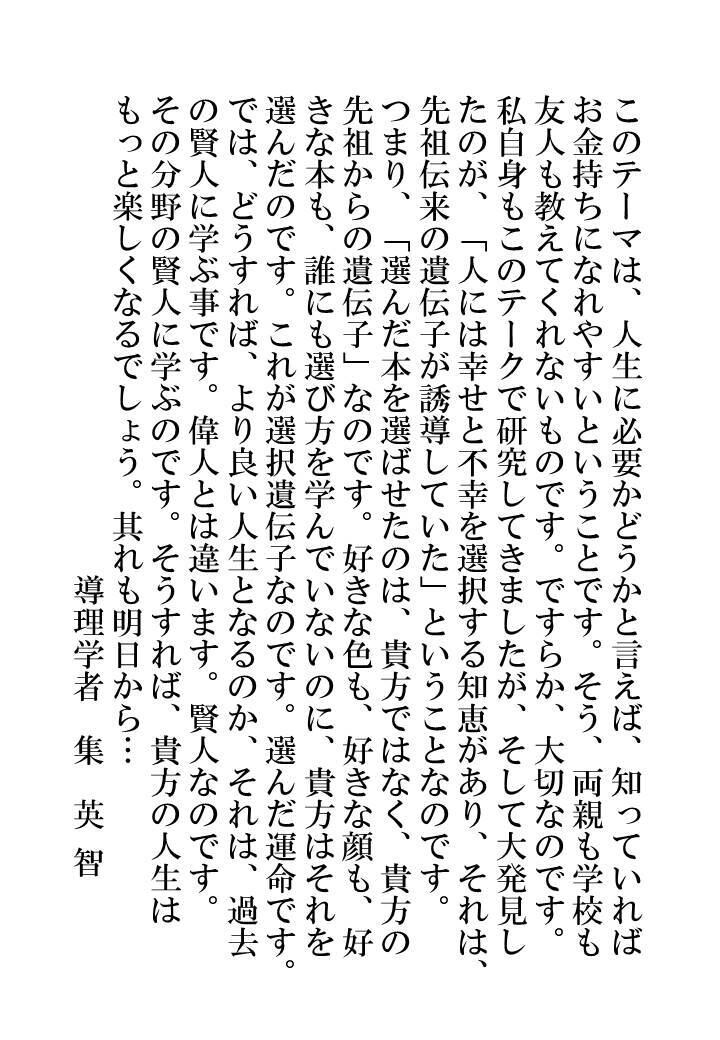 このテーマは、人生に必要かどうかと言えば、知っていれば
お金持ちになれやすいということです。そう、両親も学校も
友人も教えてくれないものです。ですらか、大切なのです。
私自身もこのテークで研究してきましたが、そして大発見し
たのが、「人には幸せと不幸を選択する知恵があり、それは、
先祖伝来の遺伝子が誘導していた」ということなのです。
つまり、「選んだ本を選ばせたのは、貴方ではなく、貴方の
先祖からの遺伝子」なのです。好きな色も、好きな顔も、好
きな本も、誰にも選び方を学んでいないのに、貴方はそれを
選んだのです。これが選択遺伝子なのです。選んだ運命です。
では、どうすれば、より良い人生となるのか、それは、過去
の賢人に学ぶ事です。偉人とは違います。賢人なのです。
その分野の賢人に学ぶのです。そうすれば、貴方の人生は
もっと楽しくなるでしょう。其れも明日から…
導理学者　集　英　智